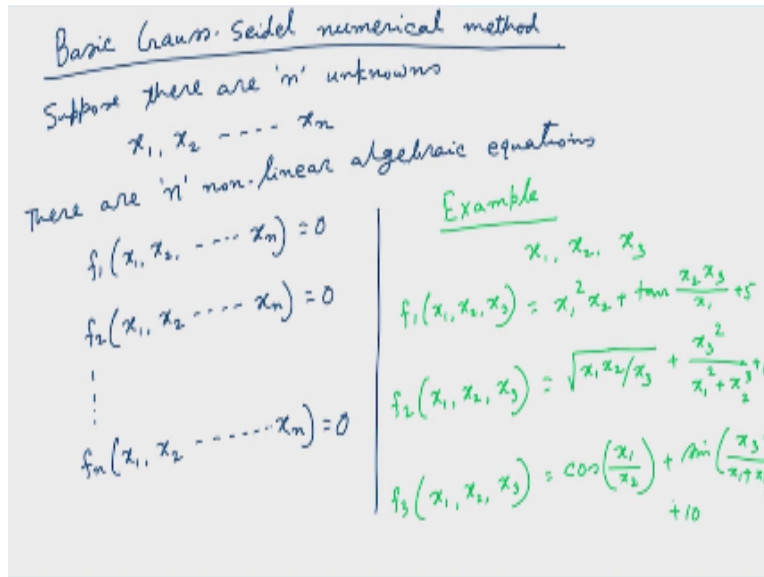 Basic Gauss-Seidel numerical method
Suppose there are 'n' unknowns
x₁, x₂ ---- xₙ
There are 'n' non-linear algebraic equations
f₁(x₁, x₂, ---- xₙ) = 0
f₂(x₁, x₂ ---- xₙ) = 0
fₙ(x₁, x₂ ------ xₙ) = 0
Example
x₁, x₂, x₃
f₁(x₁, x₂, x₃) = x₁² x₂ + tan x₂x₃/x₁ + 5
f₂(x₁, x₂, x₃) = √(x₁x₂/x₃) + x₃²/(x₁² + x₂³) +
f₃(x₁, x₂, x₃) = cos(x₁/x₂) + sin(x₃
+10